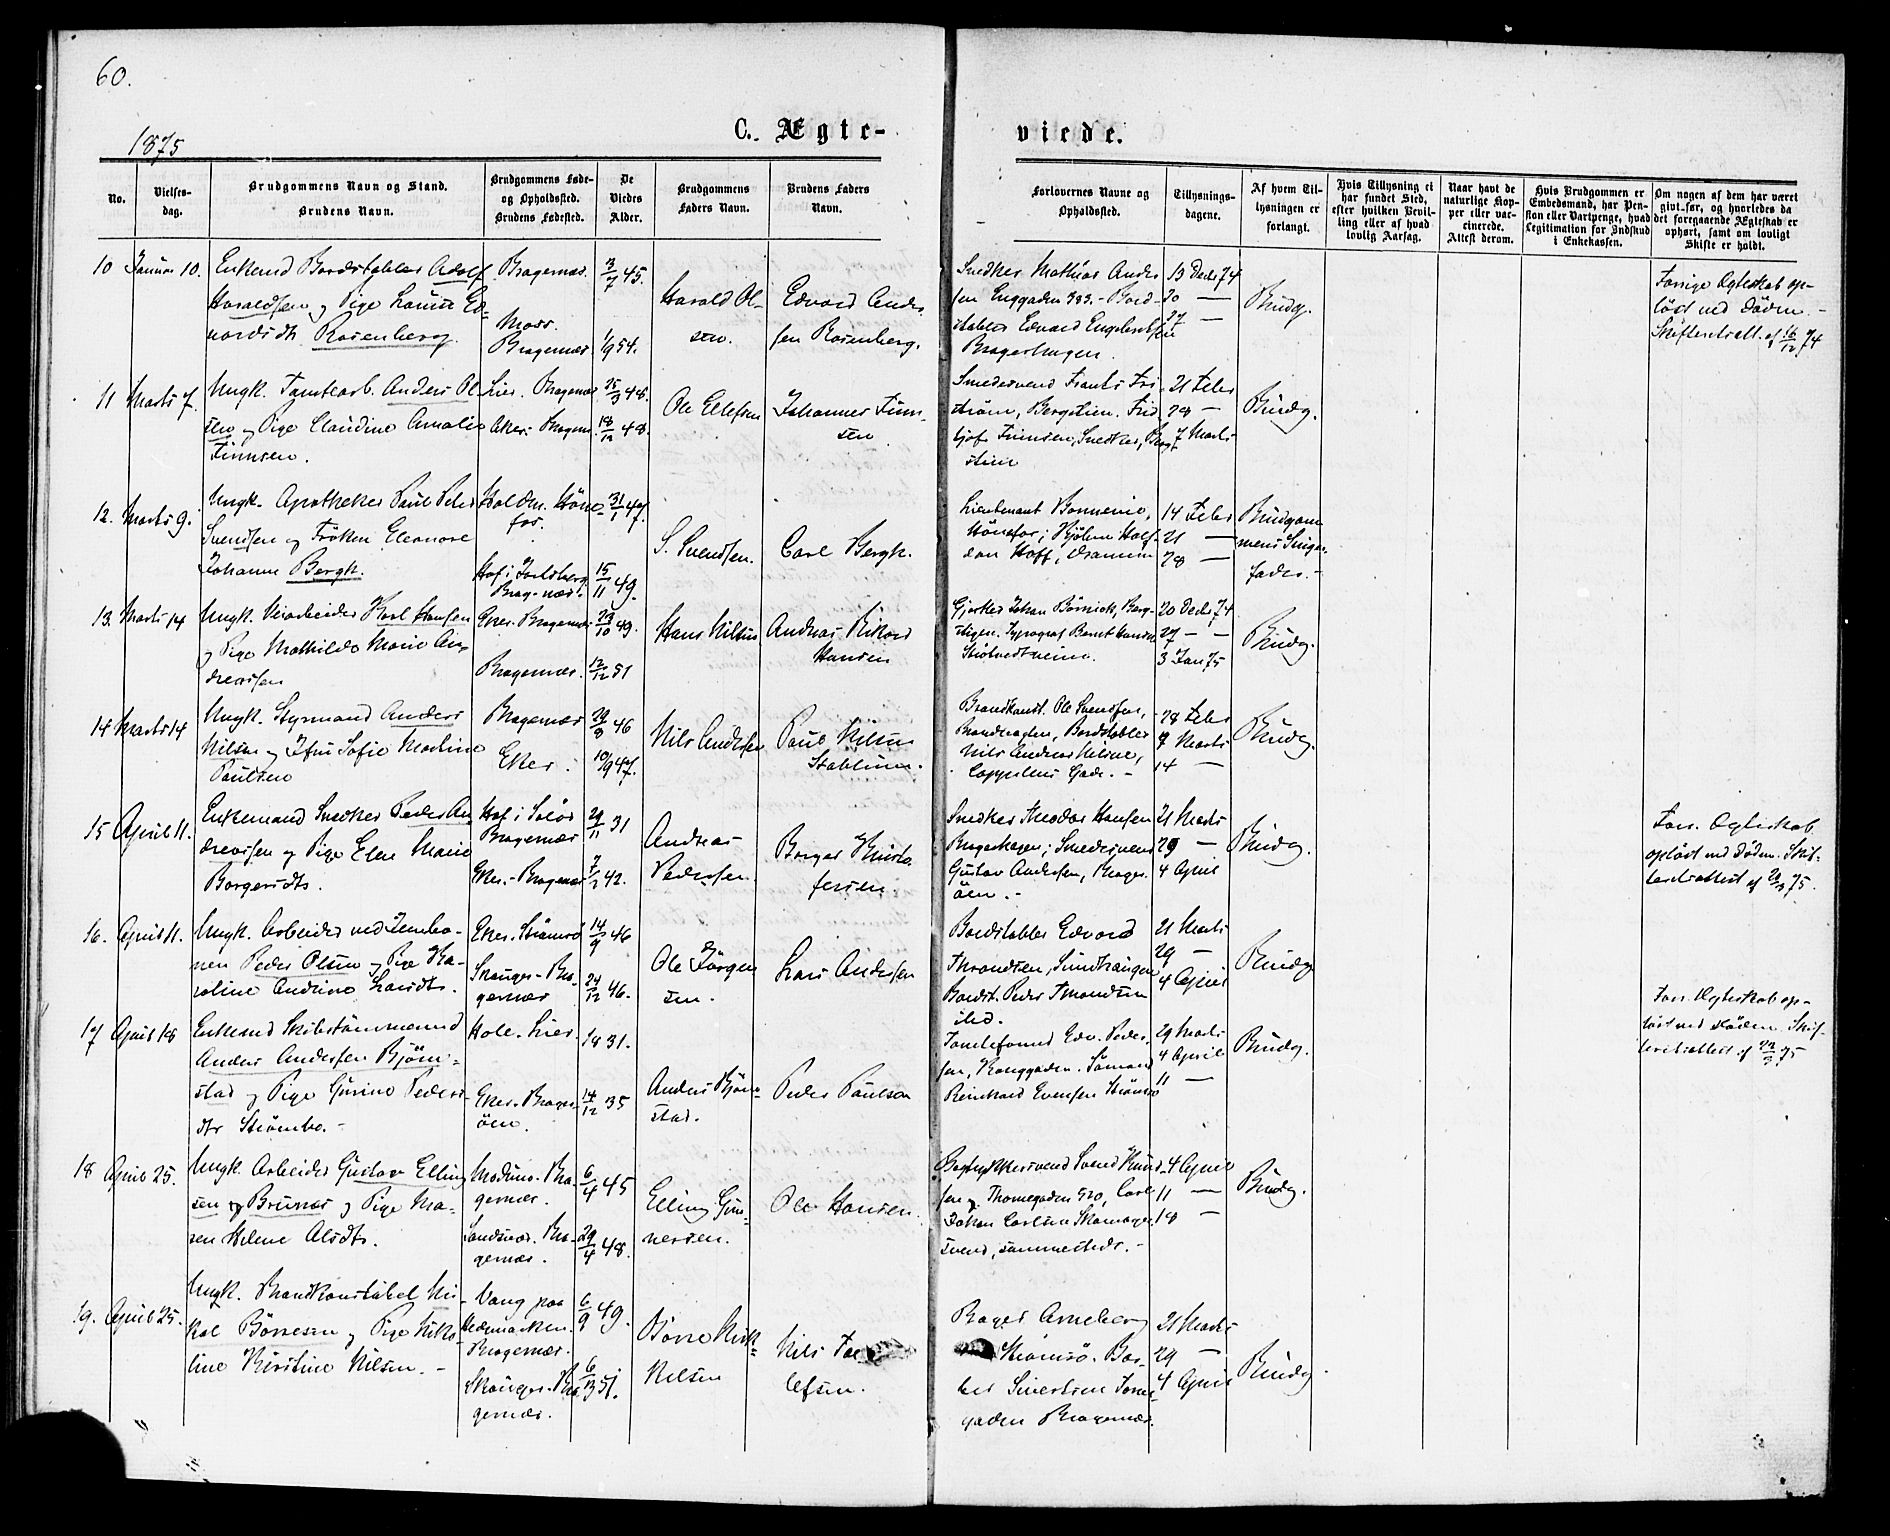 60.
1875
C. Ægte-
viede.
No.
Vielses-
dag.
Brudgommens Navn og Stand.
Brudens Navn.
Brudgommens Føde-
og Opholdssted.
Brudens Fødested.
De
Viedes
Alder.
Brudgommens
Faders Navn.
Brudens Faders
Navn.
Forlovernes Navne og
Opholdssted.
Tillysnings-
dagene.
Af hvem Til-
lysningen er
forlangt.
Hvis Tillysning ei
har fundet Sted,
efter hvilken Bevil-
ling eller af hvad
lovlig Aarsag.
Naar havt de
naturlige Kop-
per eller vac-
cinerede.
Attest derom.
Hvis Brudgommen er
Embedsmand, har Pen-
sion eller Vartpenge, hvad
Legitimation for Indskud
i Enkekassen.
Om nogen af dem har været
givt før, og hvorledes da
det foregaaende Ægteskab er
ophørt, samt om lovligt
Skifte er holdt.
10 Januar 10.
Enkemd Bordstabler Adolf
Haraldsen og Pige Laura Ed-
vardsdtr Rosenberg.
Bragernæs.
Moss.
Bragernæs
3/7 45.
1/9 54.
Harald Ol-
sen.
Edvard Ander
sen Rosenberg.
Snedker Mathias Ander
sen Enggaden 323. - Bord-
stabler Edvard Engebretsen
Bragerhagen.
13 Decbr 74
20 —
27 —
Brudg.
Forrige Ægteskab op-
løst ved Døden. -
Skifteretsatt. af 16/12 74
11 Marts 7.
Ungk. Tomtearb. Anders Ol-
sen og Pige Claudine Amalie
Finnsen.
Lier. Bragernæs
Eker. Bragern.
25/3 48.
18/12 48.
Ole Ellefsen
Johannes Finn-
sen
Smedesvend Frants Fri-
strøm, Bergstien. Frid-
tjof Finnsen, Snedker, Berg
stien
21 Febr
28 —
7 Marts
Brudg.
12. Marts 9.
Ungk. Apotheker Paul Peter
Svendsen og Frøken Eleonore
Johanne Bergh.
Halden. Høne-
fos.
Hof i Jarlsberg.
Brag-næs.
31/1 47.
15/11 49.
S. Svendsen.
Carl Bergh.
Lieutenant Bonnevie,
Hønefos; Hjalmar Half-
dan Hoff, Drammen
14 Febr
21 —
28 —
Brudgom
mens Sviger
fader. -
13. Marts 14
Ungk. Veiarbeider Karl Hansen
og Pige Mathilde Marie An-
dreassen
Eker. Bragernæs
Bragernæs.
23/10 49.
12/12 51
Hans Nilsen
Andreas Rikard
Hansen
Gjørtler Johan Börnick, Berg-
stigen. Typograf Bernt Hansen
Strötvedtveien.
20 Decbr 74
27 — —
3 Jan 75
Brudg.
14 Marts 14
Ungk. Styrmand Anders
Nilsen og Jfru Sofie Martine
Paulsen
Bragernæs
Eker.
29/3 46
10/9 47.
Nils Andersen
Paul Nilsen
Stablum.
Brandkonst. Ole Svendsen,
Brandvagten, Bordstabler
Nils Andreas Nilsen,
Cappelens Gade. -
28 Febr
7 Marts
14 —
Brudg.
15 April 11.
Enkemand Snedker Peder An
dreassen og Pige Elen Marie
Borgersdtr.
Hof i Solør
Bragernæs
Eker. - Bragernæs
29/11 31
7/2 42.
Andreas
Pedersen.
Borger Kristo
fersen
Snedker Theodor Hansen
Bragerhagen; Smedesvend
Gustav Andersen, Brager
öen. -
21 Marts
29 —
4 April
Brudg.
Forr. Ægteskab
opløst ved Døden. Skif-
teretsattest af 20/3 75.
16. April 11.
Ungk. Arbeider ved Jernba-
nen Peder Olsen og Pige Ka-
roline Andrine Larsdtr.
Eker. Strømsø
Skauger - Bra-
gernæs
14/9 46
24/12 46.
Ole Jørgen
sen.
Lars Andersen
Bordstabler Edvard
Throndsen, Sundhaugen
Bordst. Peder Throndsen
ibd.
21 Marts
29 —
4 April
Brudg
17 April 18
Enkemd Skibstømmermand
Anders Andersen Bjørn-
stad og Pige Gurine Peders
dtr Strømbo. -
Hole. Lier.
Eker. Brager-
øen.
1831.
14/12 35
Anders Bjørn-
stad.
Peder Paulsen
Tomteformd Edv. Peder
sen, Konggaden. Sömand
Reinhard Evensen Strömsö
29 Marts
4 April
11 —
Brudg.
Forr. Ægteskab op-
løst ved Døden. Skif-
teretsattest af 22/3 75
18 April 25.
Ungk. Arbeider Gustav Elling
sen Brunæs og Pige Ma-
ren Helene Olsdtr.
Modum. Bra-
gernæs.
Sandsvær. Bra-
gernæs.
6/4 45
29/4 48.
Elling Gun-
nersen.
Ole Hansen.
Bogtrykkersvend Svend Knud-
sen, Thornegaden 520, Carl
Johan Carlsen Skomager
svend, sammesteds. -
4 April
11 —
18 —
Brudg.
19. April 25.
Ungk. Brandkonstabel Mi-
kal Börresen og Pige Niko-
line Kirstine Nilsen. -
Vang paa
Hedemarken.
Bragernæs.
Skouger. Bra
gernæs.
6/9 49.
6/3 51.
Børre Mik-
kelsen
Nils Tol
lefsen.
Bager Arneberg
Strømsø. Bor-
Sivertsen Torne-
gaden Bragernæs.
21 Marts
29 —
4 April
Brudg